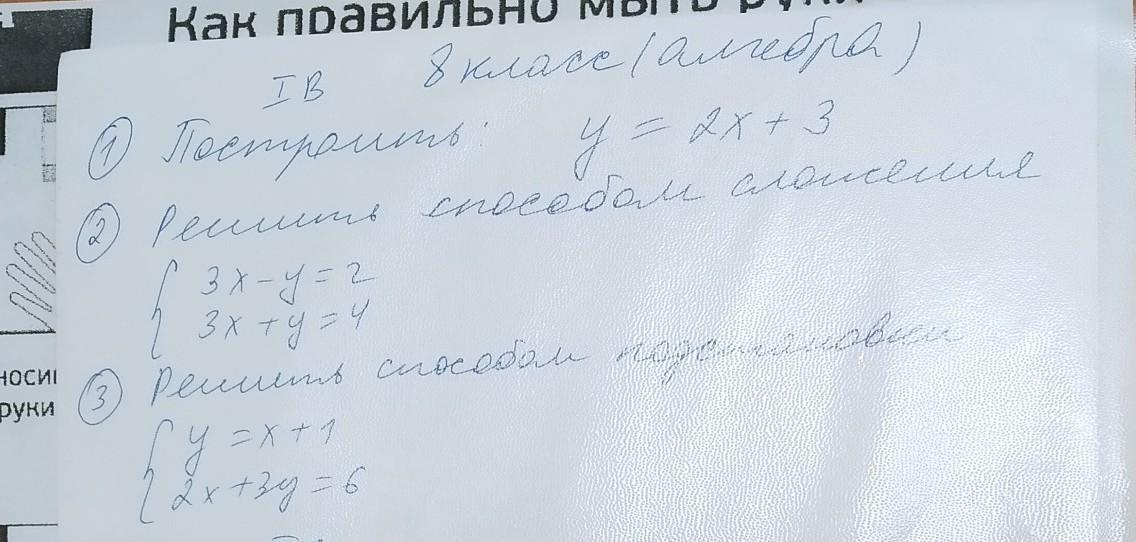 Как правильно мыть руки
8 класс (алгебра)
I В
① Построить: y = 2x + 3
② Решить способом сложения
3x - y = 2
3x + y = 4
③ Решить способом подстановки
y = x + 1
2x + 3y = 6
руки